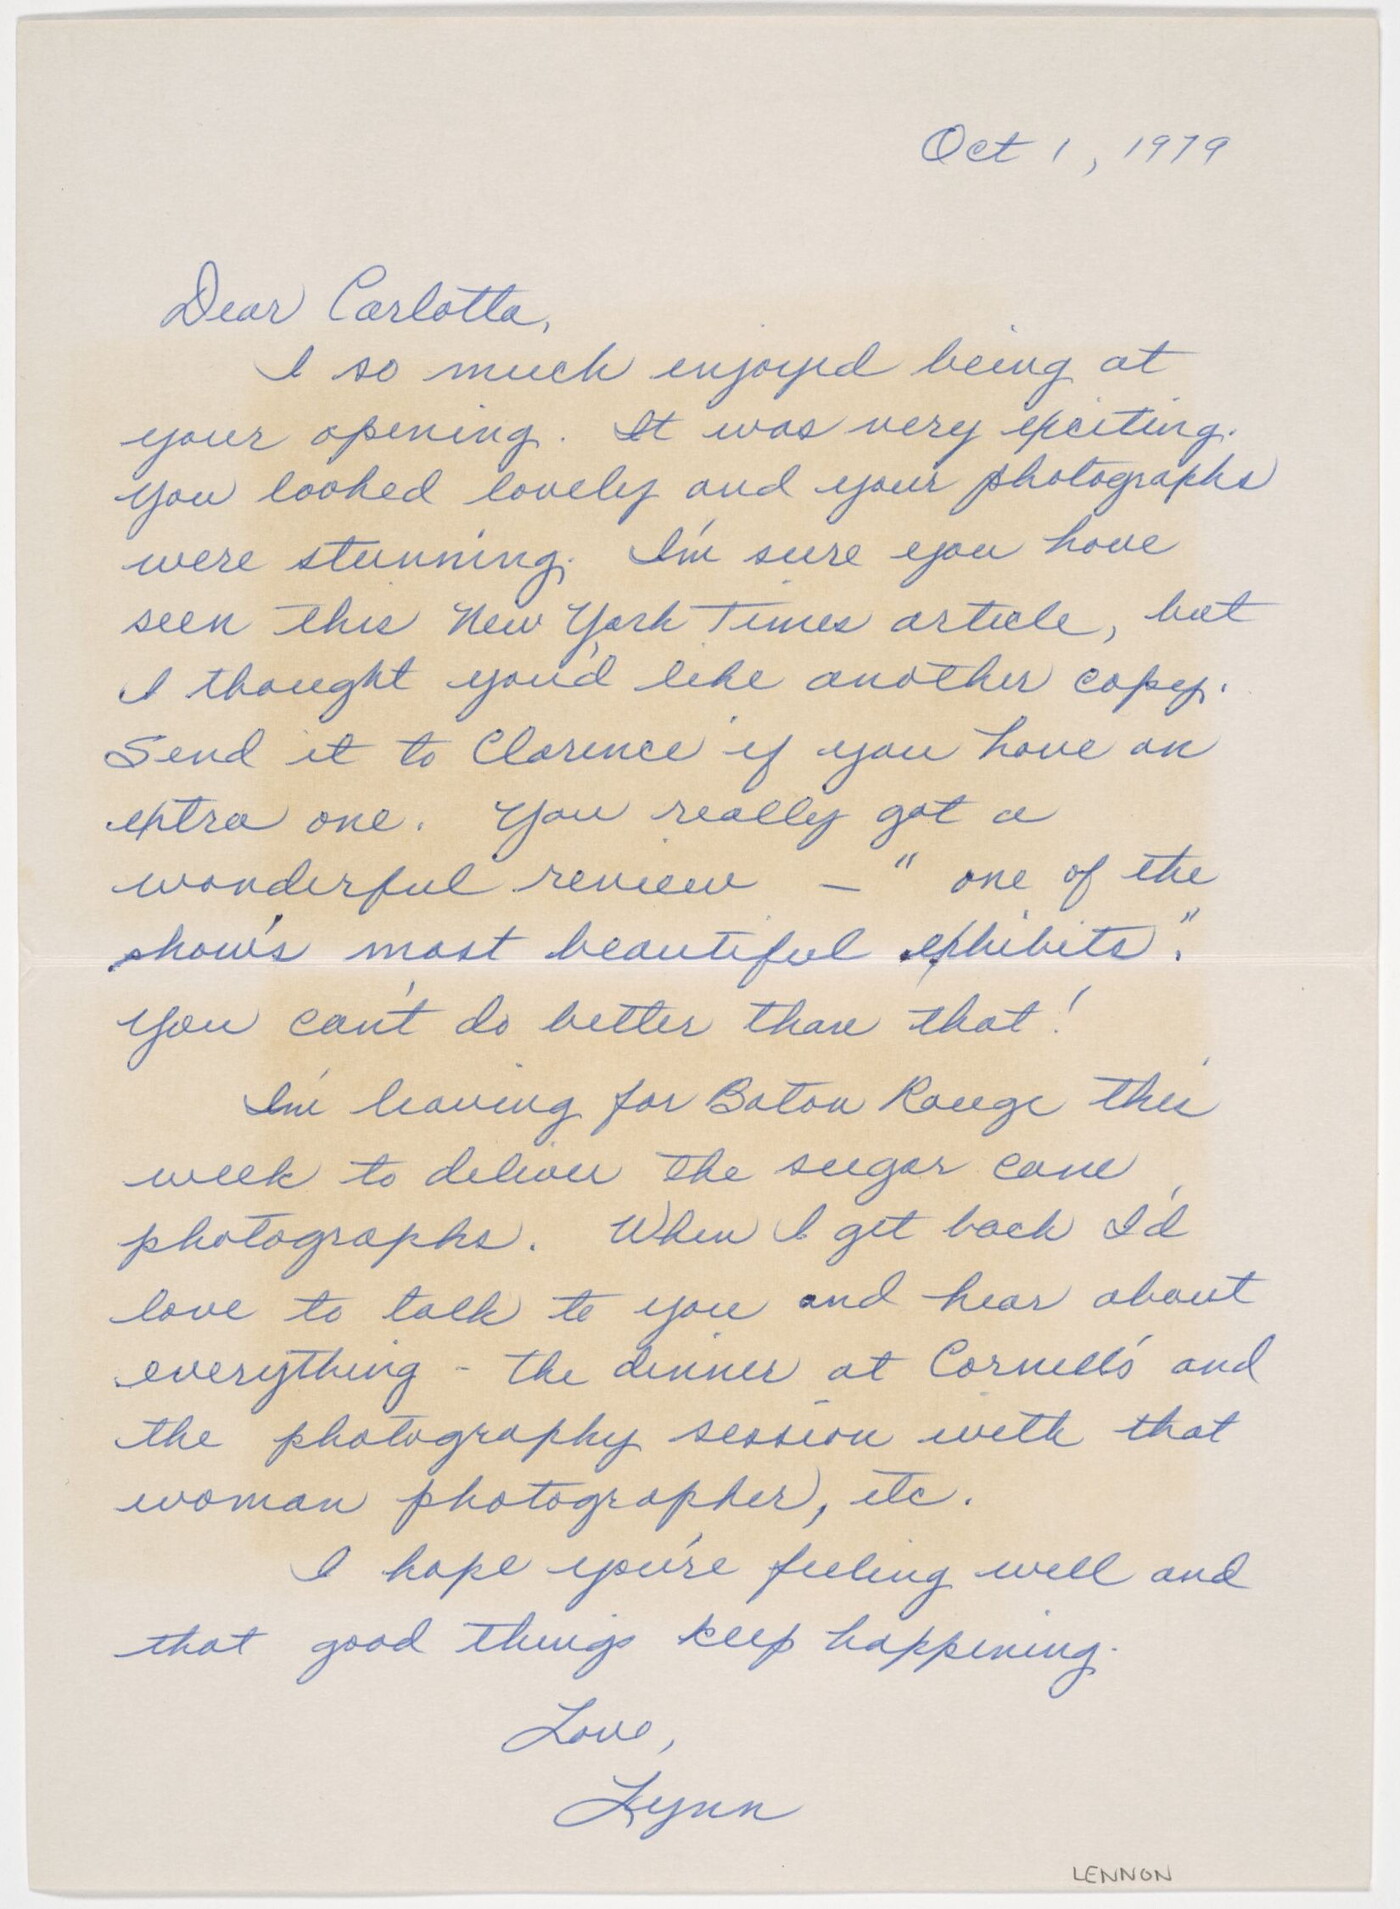 Oct 1, 1979
Dear Carlotta,
I so much enjoyed being at
your opening. It was very exciting.
You looked lovely and your photographs
were stunning. I'm sure you have
seen this New York Times article, but
I thought you'd like another copy.
Send it to Clarence if you have an
extra one. You really got a
wonderful review — "one of the
show's most beautiful exhibits".
You can't do better than that!
I'm leaving for Baton Rouge this
week to deliver the sugar cane
photographs. When I get back I'd
love to talk to you and hear about
everything - the dinner at Cornell's and
the photography session with that
woman photographer, etc.
I hope you're feeling well and
that good things keep happening.
Love,
Lynn
LENNON